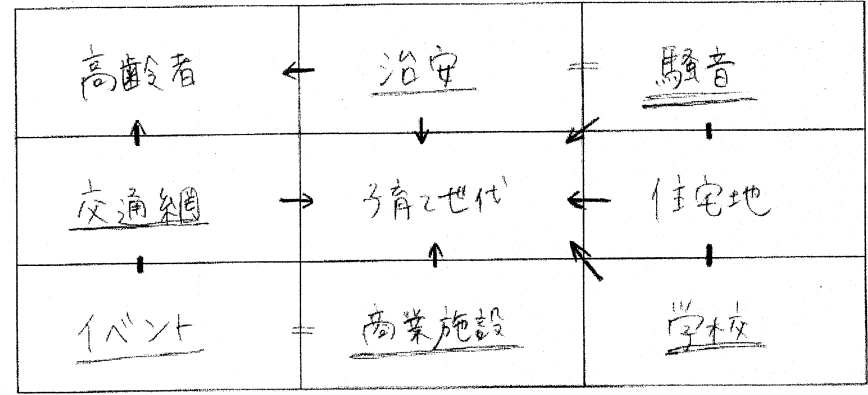 高齢者 ← 治安 = 騒音
交通網 → 子育て世代 ← 住宅地
イベント = 商業施設 学校